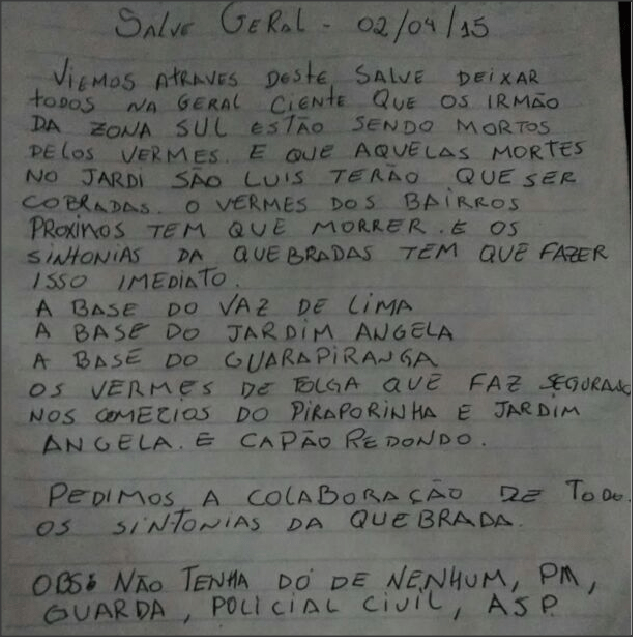 SALVE GERAL - 02/04/15
VIEMOS ATRAVES DESTE SALVE DEIXAR
TODOS NA GERAL CIENTE QUE OS IRMÃO
DA ZONA SUL ESTÃO SENDO MORTOS
PELOS VERMES. E QUE AQUELAS MORTES
NO JARDI SÃO LUIS TERÃO QUE SER
COBRADAS. O VERMES DOS BAIRROS
PROXIMOS TEM QUE MORRER. E OS
SINTONIAS DA QUEBRADAS TEM QUE FAZER
ISSO IMEDIATO.
A BASE DO VAZ DE LIMA
A BASE DO JARDIM ANGELA
A BASE DO GUARAPIRANGA
OS VERMES DE FOLGA QUE FAZ SEGURANÇ
NOS COMEZIOS DO PIRAPORINHA E JARDIM
ANGELA. E CAPÃO REDONDO.
PEDIMOS A COLABORAÇÃO DE TODO.
OS SINTONIAS DA QUEBRADA.
OBS: NÃO TENHA DÓ DE NENHUM, PM,
GUARDA, POLICIAL CIVIL, ASP.